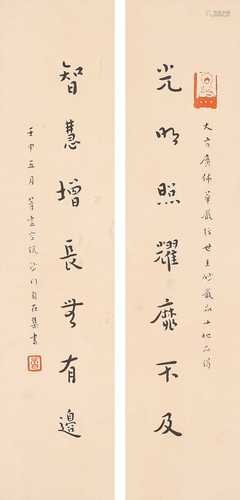 大方廣佛華嚴經世主妙嚴品十地品偈
光明照耀靡不及
智慧增長無有邊
壬申五月 沙門自在集書